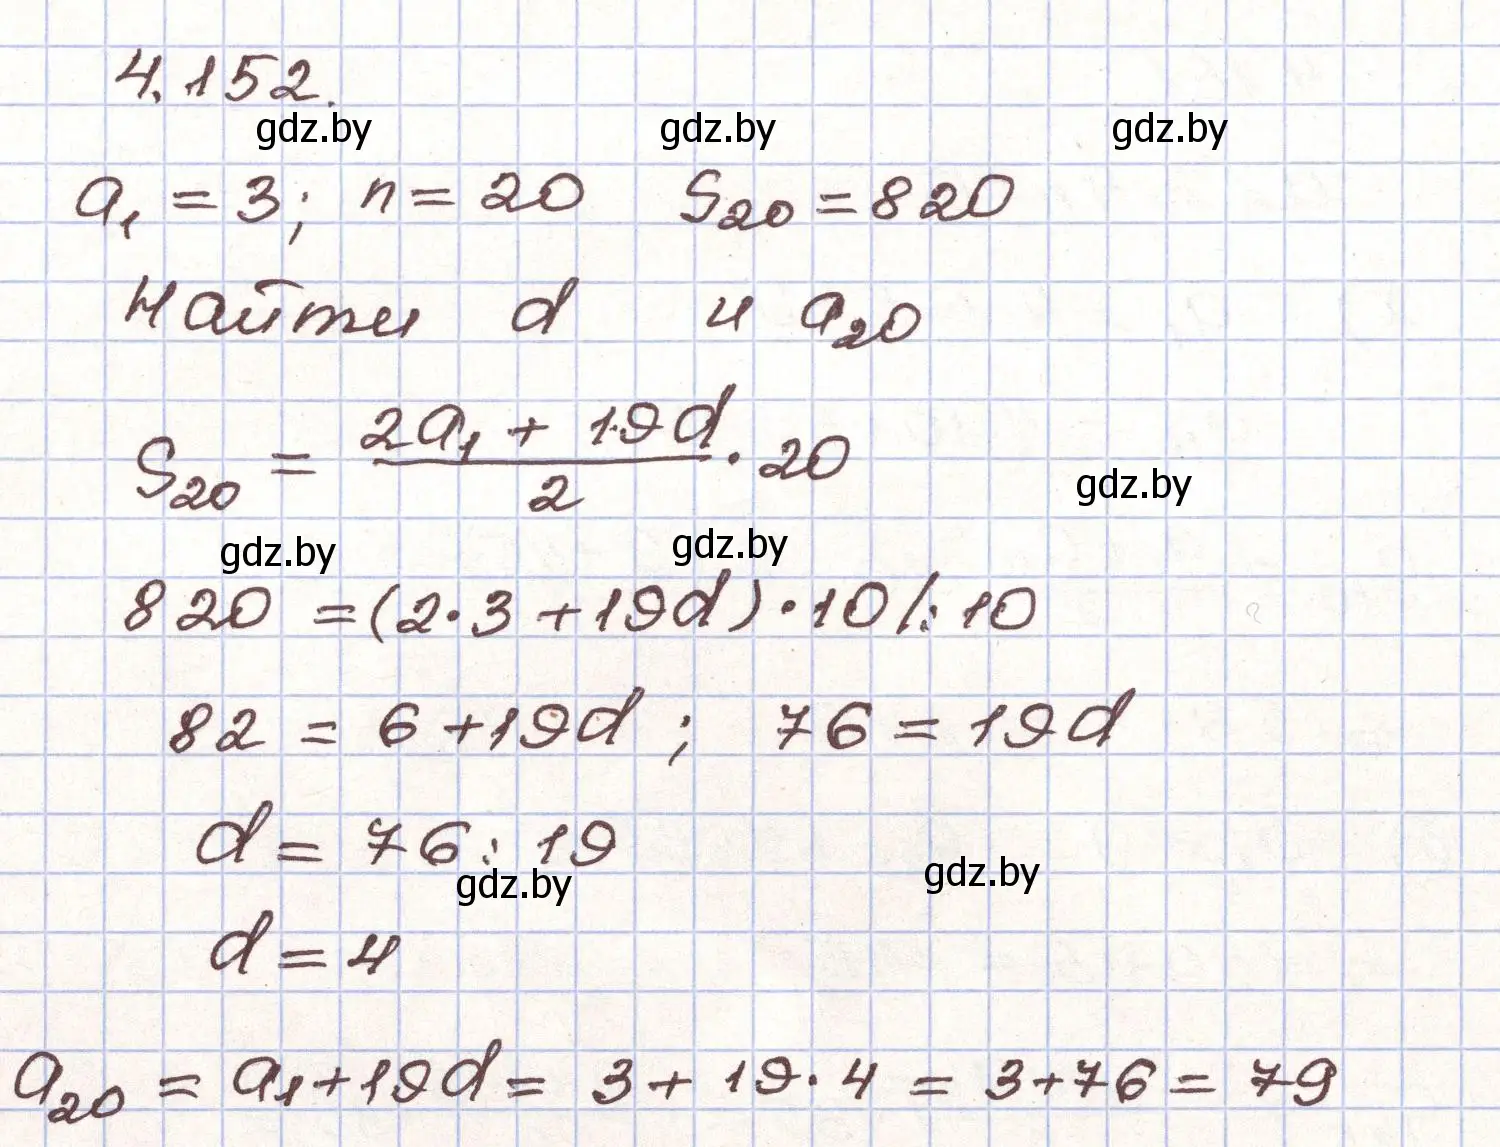 4.152.
gdz.by gdz.by gdz.by
a₁ = 3; n = 20 S₂₀ = 820
Найти d и a₂₀
S₂₀ = (2a₁ + 19d)/2 · 20
gdz.by
gdz.by gdz.by
820 = (2·3 + 19d)·10 /:10
82 = 6 + 19d ; 76 = 19d
d = 76 : 19
gdz.by gdz.by
d = 4
a₂₀ = a₁ + 19d = 3 + 19·4 = 3 + 76 = 79